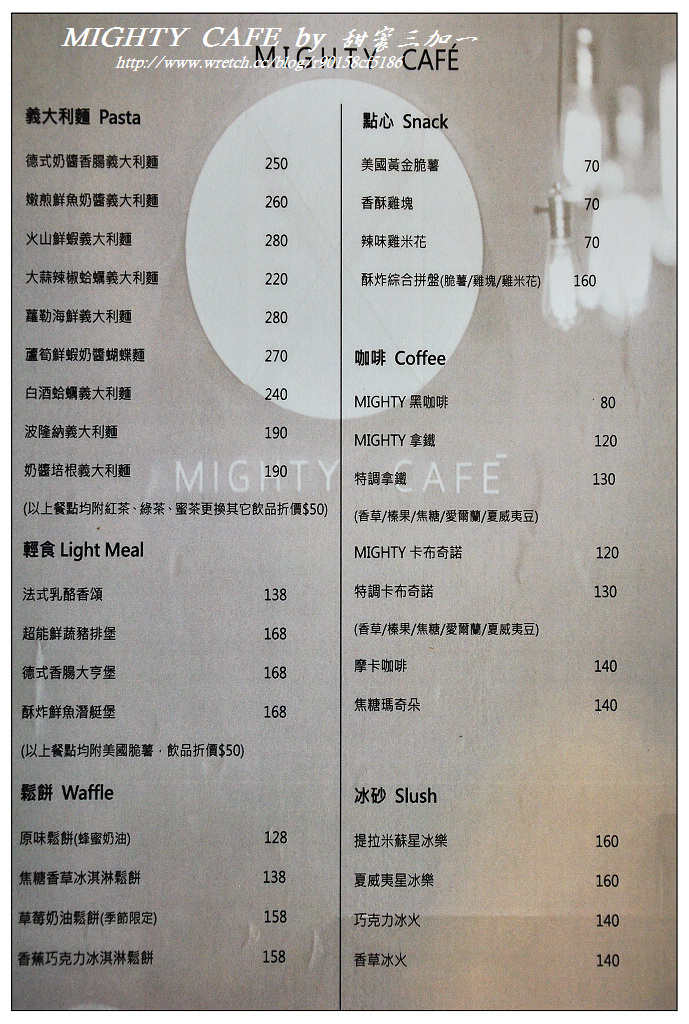 MIGHTY CAFE by 甜蜜三加一
MIGHTY CAFÉ
http://www.wretch.cc/blog/r90158cf5186
義大利麵 Pasta
德式奶醬香腸義大利麵 250
嫩煎鮮魚奶醬義大利麵 260
火山鮮蝦義大利麵 280
大蒜辣椒蛤蠣義大利麵 220
蘿勒海鮮義大利麵 280
蘆筍鮮蝦奶醬蝴蝶麵 270
白酒蛤蠣義大利麵 240
波隆納義大利麵 190
奶醬培根義大利麵 190
(以上餐點均附紅茶、綠茶、蜜茶更換其它飲品折價$50)
輕食 Light Meal
法式乳酪香頌 138
超能鮮蔬豬排堡 168
德式香腸大亨堡 168
酥炸鮮魚潛艇堡 168
(以上餐點均附美國脆薯，飲品折價$50)
鬆餅 Waffle
原味鬆餅(蜂蜜奶油) 128
焦糖香草冰淇淋鬆餅 138
草莓奶油鬆餅(季節限定) 158
香蕉巧克力冰淇淋鬆餅 158
點心 Snack
美國黃金脆薯 70
香酥雞塊 70
辣味雞米花 70
酥炸綜合拼盤(脆薯/雞塊/雞米花) 160
咖啡 Coffee
MIGHTY 黑咖啡 80
MIGHTY 拿鐵 120
特調拿鐵 130
(香草/榛果/焦糖/愛爾蘭/夏威夷豆)
MIGHTY 卡布奇諾 120
特調卡布奇諾 130
(香草/榛果/焦糖/愛爾蘭/夏威夷豆)
摩卡咖啡 140
焦糖瑪奇朵 140
冰砂 Slush
提拉米蘇星冰樂 160
夏威夷星冰樂 160
巧克力冰火 140
香草冰火 140
MIGHTY CAFÉ